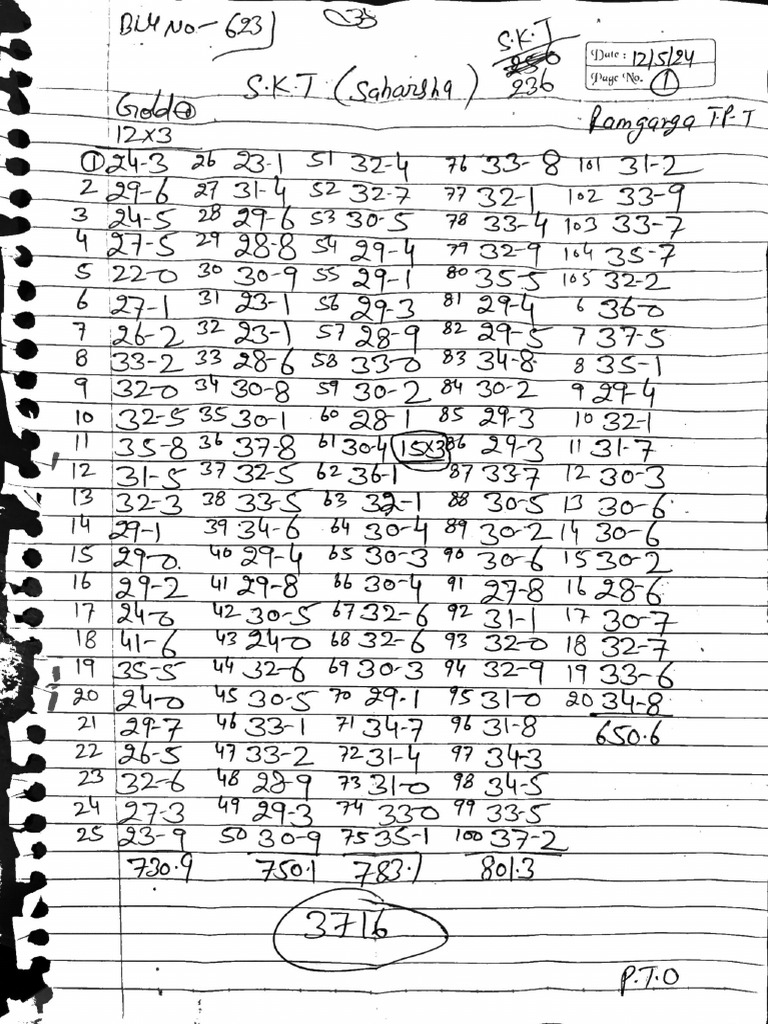 Bill No - 623
38
S.K.T
236
Date: 12/5/24
Page No. 1
S.K.T (Saharsha)
Ramgarga T.P.T
Gold
12×3
1 24-3 26 23-1 51 32-4 76 33-8 101 31-2
2 29-6 27 31-4 52 32-7 77 32-1 102 33-9
3 24-5 28 29-6 53 30-5 78 33-4 103 33-7
4 27-5 29 28-8 54 29-4 79 32-9 104 35-7
5 22-0 30 30-9 55 29-1 80 35-5 105 32-2
6 27-1 31 23-1 56 29-3 81 29-4 6 36-0
7 26-2 32 23-1 57 28-9 82 29-5 7 37-5
8 33-2 33 28-6 58 33-0 83 34-8 8 35-1
9 32-0 34 30-8 59 30-2 84 30-2 9 29-4
10 32-5 35 30-1 60 28-1 85 29-3 10 32-1
11 35-8 36 37-8 61 30-4 15×3 86 29-3 11 31-7
12 31-5 37 32-5 62 36-1 87 33-7 12 30-3
13 32-3 38 33-5 63 32-1 88 30-5 13 30-6
14 29-1 39 34-6 64 30-4 89 30-2 14 30-6
15 29-0 40 29-4 65 30-3 90 30-6 15 30-2
16 29-2 41 29-8 66 30-4 91 27-8 16 28-6
17 24-0 42 30-5 67 32-6 92 31-1 17 30-7
18 41-6 43 24-0 68 32-6 93 32-0 18 32-7
19 35-5 44 32-6 69 30-3 94 32-9 19 33-6
20 24-0 45 30-5 70 29-1 95 31-0 20 34-8
21 29-7 46 33-1 71 34-7 96 31-8 650.6
22 26-5 47 33-2 72 31-4 97 34-3
23 32-6 48 28-9 73 31-0 98 34-5
24 27-3 49 29-3 74 33-0 99 33-5
25 23-9 50 30-9 75 35-1 100 37-2
730.9 750.1 783.1 801.3
3716
P.T.O